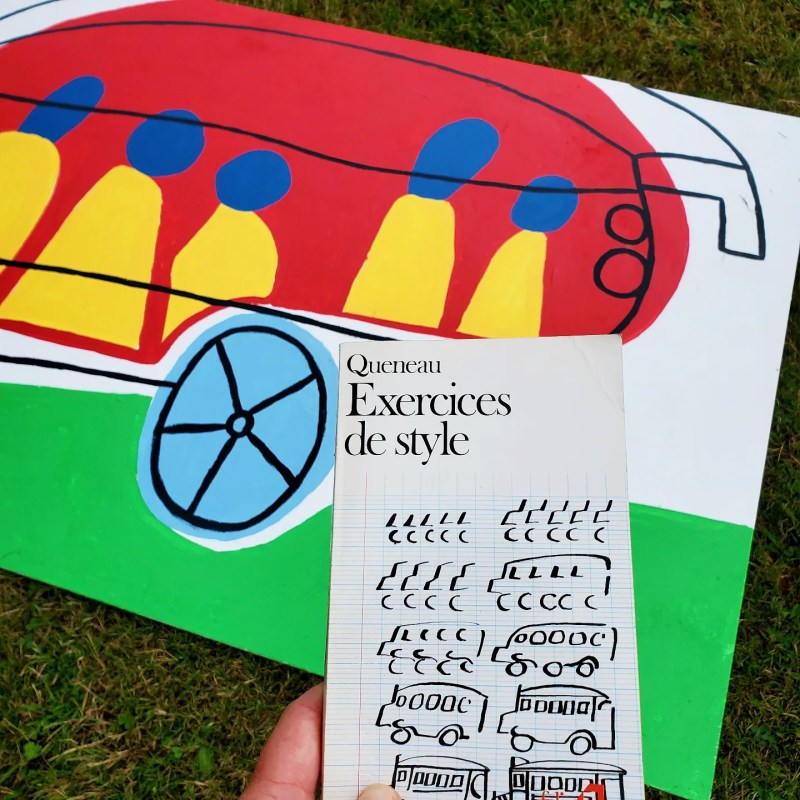 Queneau
Exercices
de style